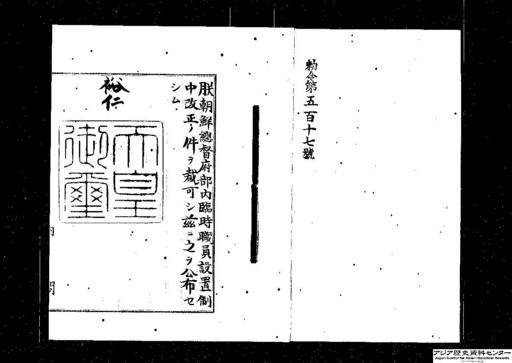 勅令第五百十七號
朕朝鮮總督府部內臨時職員設置制
中改正ノ件ヲ裁可シ茲ニ之ヲ公布セ
シム
裕仁
天皇
御璽
内 閣
アジア歴史資料センター
Japan Center for Asian Historical Records